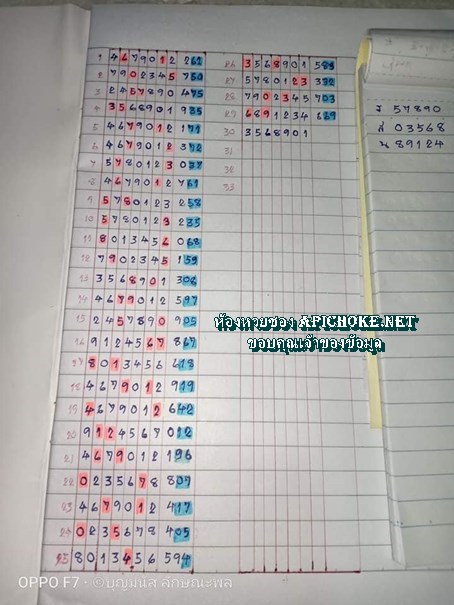 1 4679012 262
2 7902345 750
3 2457890 475
4 3568901 935
5 4679012 171
6 4679012 372
7 5780123 038
8 4679012 761
9 5780123 258
10 5780129 235
11 8013456 068
12 7902345 159
13 3568901 308
14 4679012 597
15 2457890 905
16 9124567 867
17 8013456 618
18 4679012 919
19 4679012 642
20 9124567 012
21 4679012 196
22 0235678 807
23 4679012 417
24 0235678 405
25 8013456 594
26 3568901 583
27 5780123 332
28 7902345 703
29 6891234 669
30 3568901
31
32
33
57890
ส 03568
น 89124
ห้องหวยซอง APICHOKE.NET
ขอบคุณเจ้าของข้อมูล
OPPO F7 · ©บุญมนัส ลักษณะพล